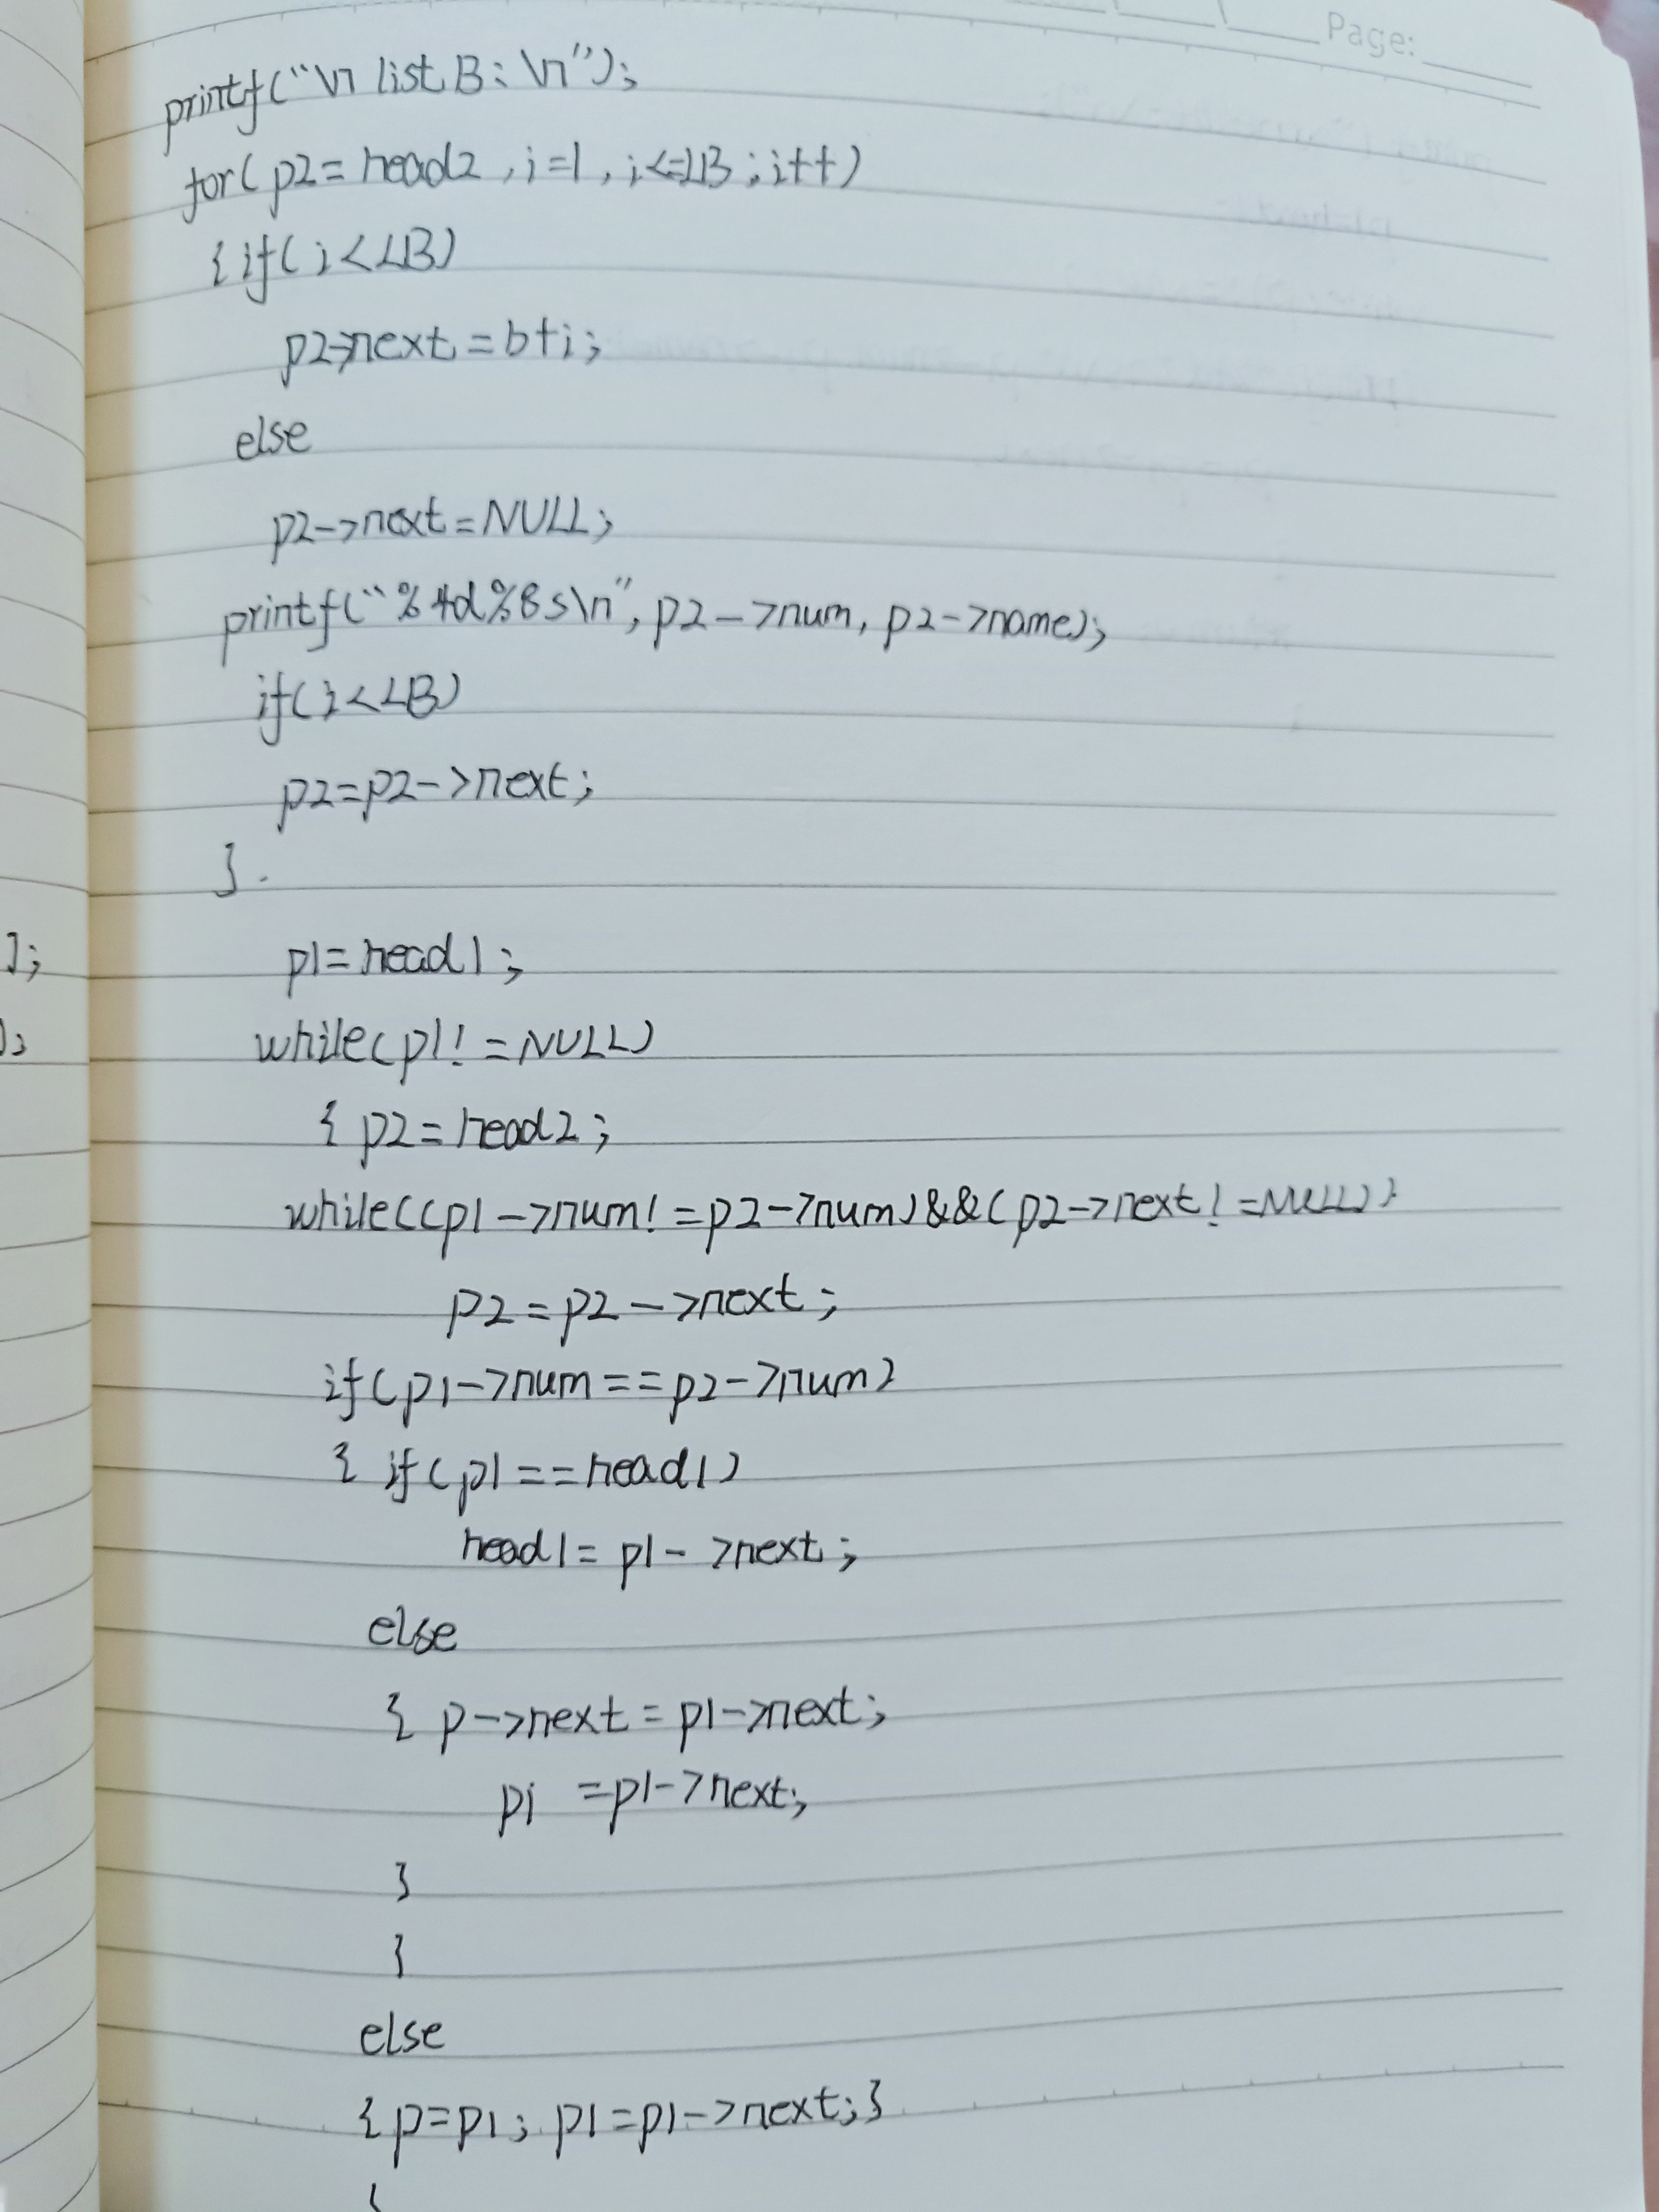 Page:
printf("\n list B: \n");
for( p2= head2 , i=1 , i<=LB ; i++)
{ if( i < LB)
p2->next = b+i;
else
p2->next = NULL;
printf("%4d%8s\n", p2->num, p2->name);
if( i < LB)
p2=p2->next;
}
p1= head1;
while(p1! = NULL)
{ p2 = head2;
while((p1->num! = p2->num)&&(p2->next! =NULL))
p2 = p2->next;
if(p1->num == p2->num)
{ if(p1 == head1)
head1 = p1->next;
else
{ p->next = p1->next;
p1 = p1->next;
}
}
else
{p=p1; p1=p1->next;}
];
);